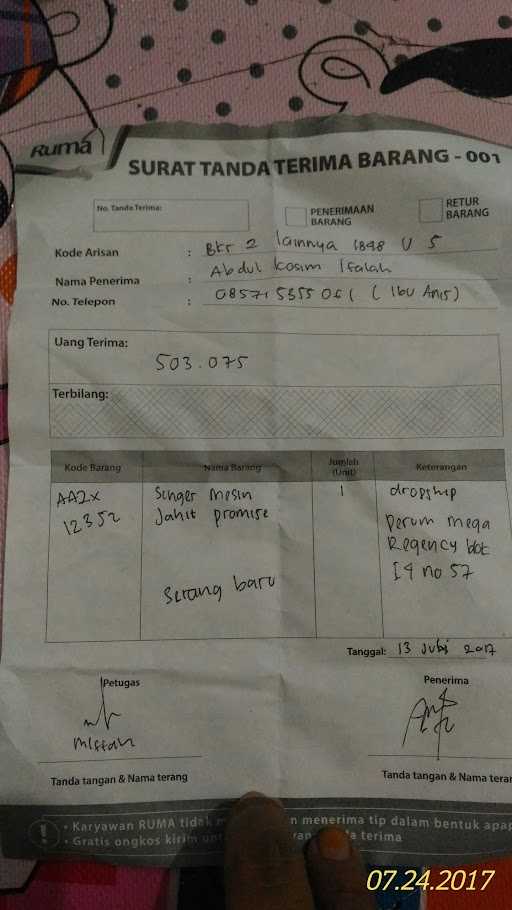 Ruma
SURAT TANDA TERIMA BARANG - 001
No. Tanda Terima:
PENERIMAAN BARANG
RETUR BARANG
Kode Arisan : Bkr 2 lainnya 1898 U 5
Nama Penerima : Abdul kosim Ifalah
No. Telepon : (Ibu Anis)
Uang Terima:
503.075
Terbilang:
Kode Barang Nama Barang Jumlah (Unit) Keterangan
AA2X Singer mesin 1 dropship
12352 Jahit promise Perum mega
Regency blok
I4 no 57
Serang baru
Tanggal: 13 Juli 2017
Petugas Penerima
Tanda tangan & Nama terang Tanda tangan & Nama teran
! • Karyawan RUMA tidak menerima tip dalam bentuk apap
• Gratis ongkos kirim terima
07.24.2017